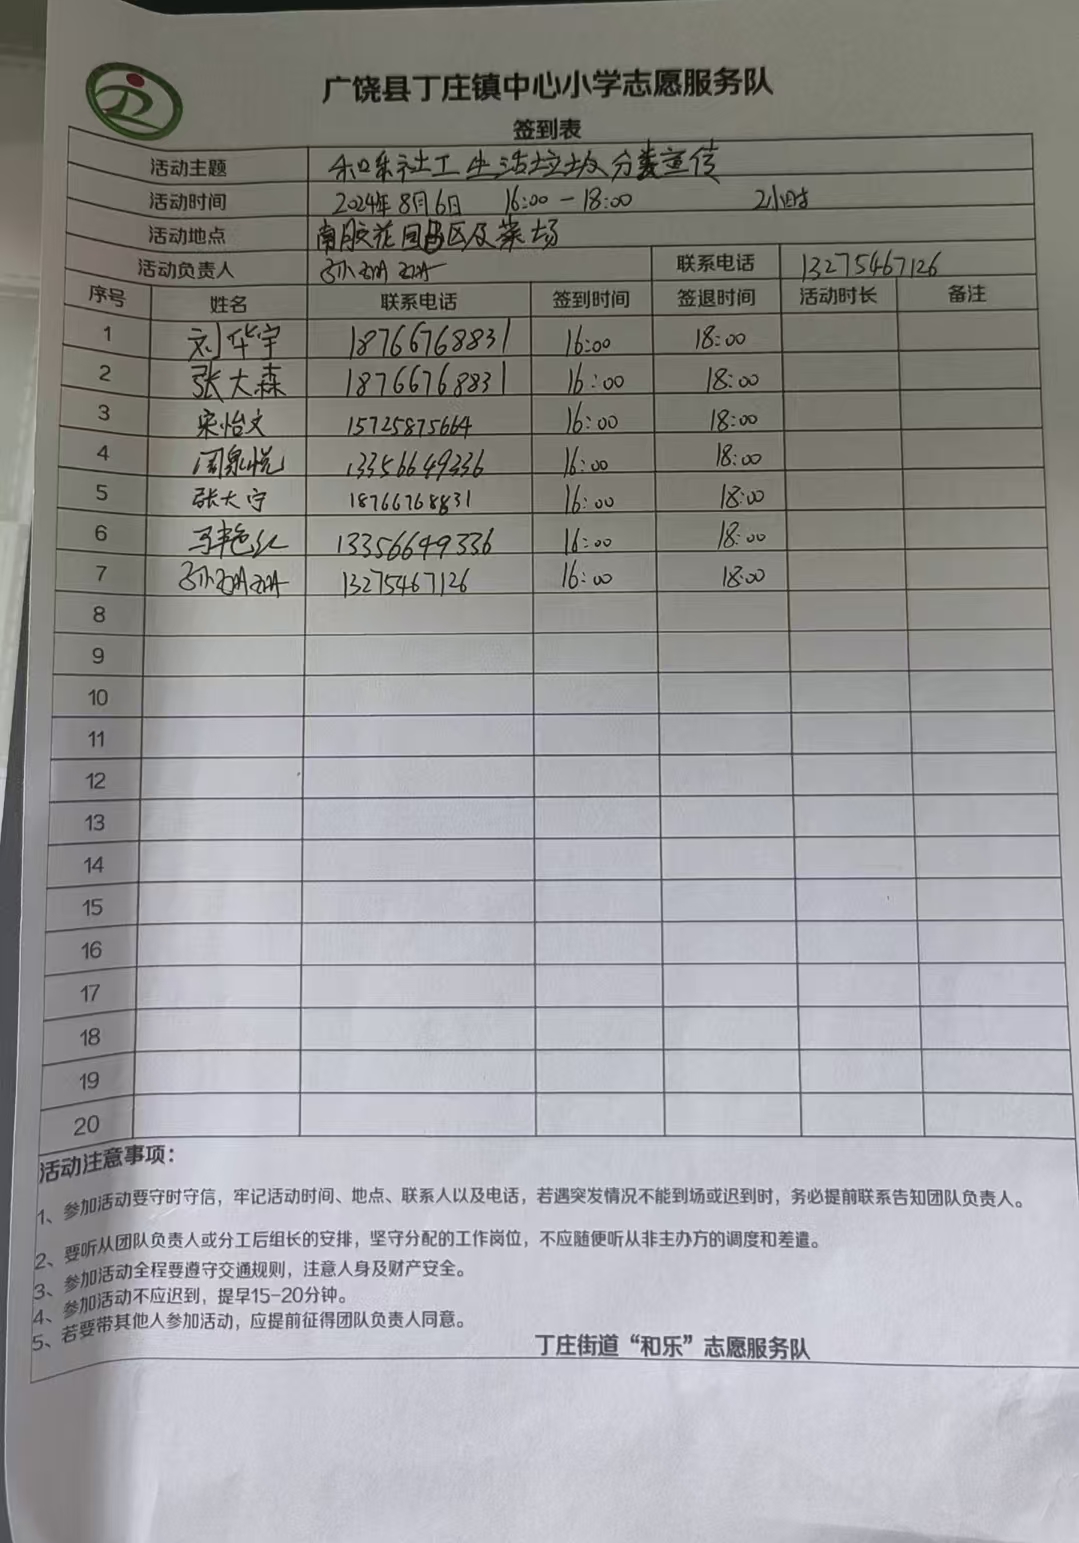 广饶县丁庄镇中心小学志愿服务队
签到表
活动主题 和乐社工生活垃圾分类宣传
活动时间 2024年8月6日 16:00-18:00 2小时
活动地点 南胶花园小区及菜场
活动负责人 联系电话 13275467126
序号 姓名 联系电话 签到时间 签退时间 活动时长 备注
1 刘华宇 18766768831 16:00 18:00
2 张大森 18766768831 16:00 18:00
3 宋怡文 15725875664 16:00 18:00
4 周泉悦 13356649336 16:00 18:00
5 张大宁 18766768831 16:00 18:00
6 马艳红 13356649336 16:00 18:00
7 13275467126 16:00 18:00
8
9
10
11
12
13
14
15
16
17
18
19
20
活动注意事项：
1、参加活动要守时守信，牢记活动时间、地点、联系人以及电话，若遇突发情况不能到场或迟到时，务必提前联系告知团队负责人。
2、要听从团队负责人或分工后组长的安排，坚守分配的工作岗位，不应随便听从非主办方的调度和差遣。
3、参加活动全程要遵守交通规则，注意人身及财产安全。
4、参加活动不应迟到，提早15-20分钟。
5、若要带其他人参加活动，应提前征得团队负责人同意。
丁庄街道“和乐”志愿服务队